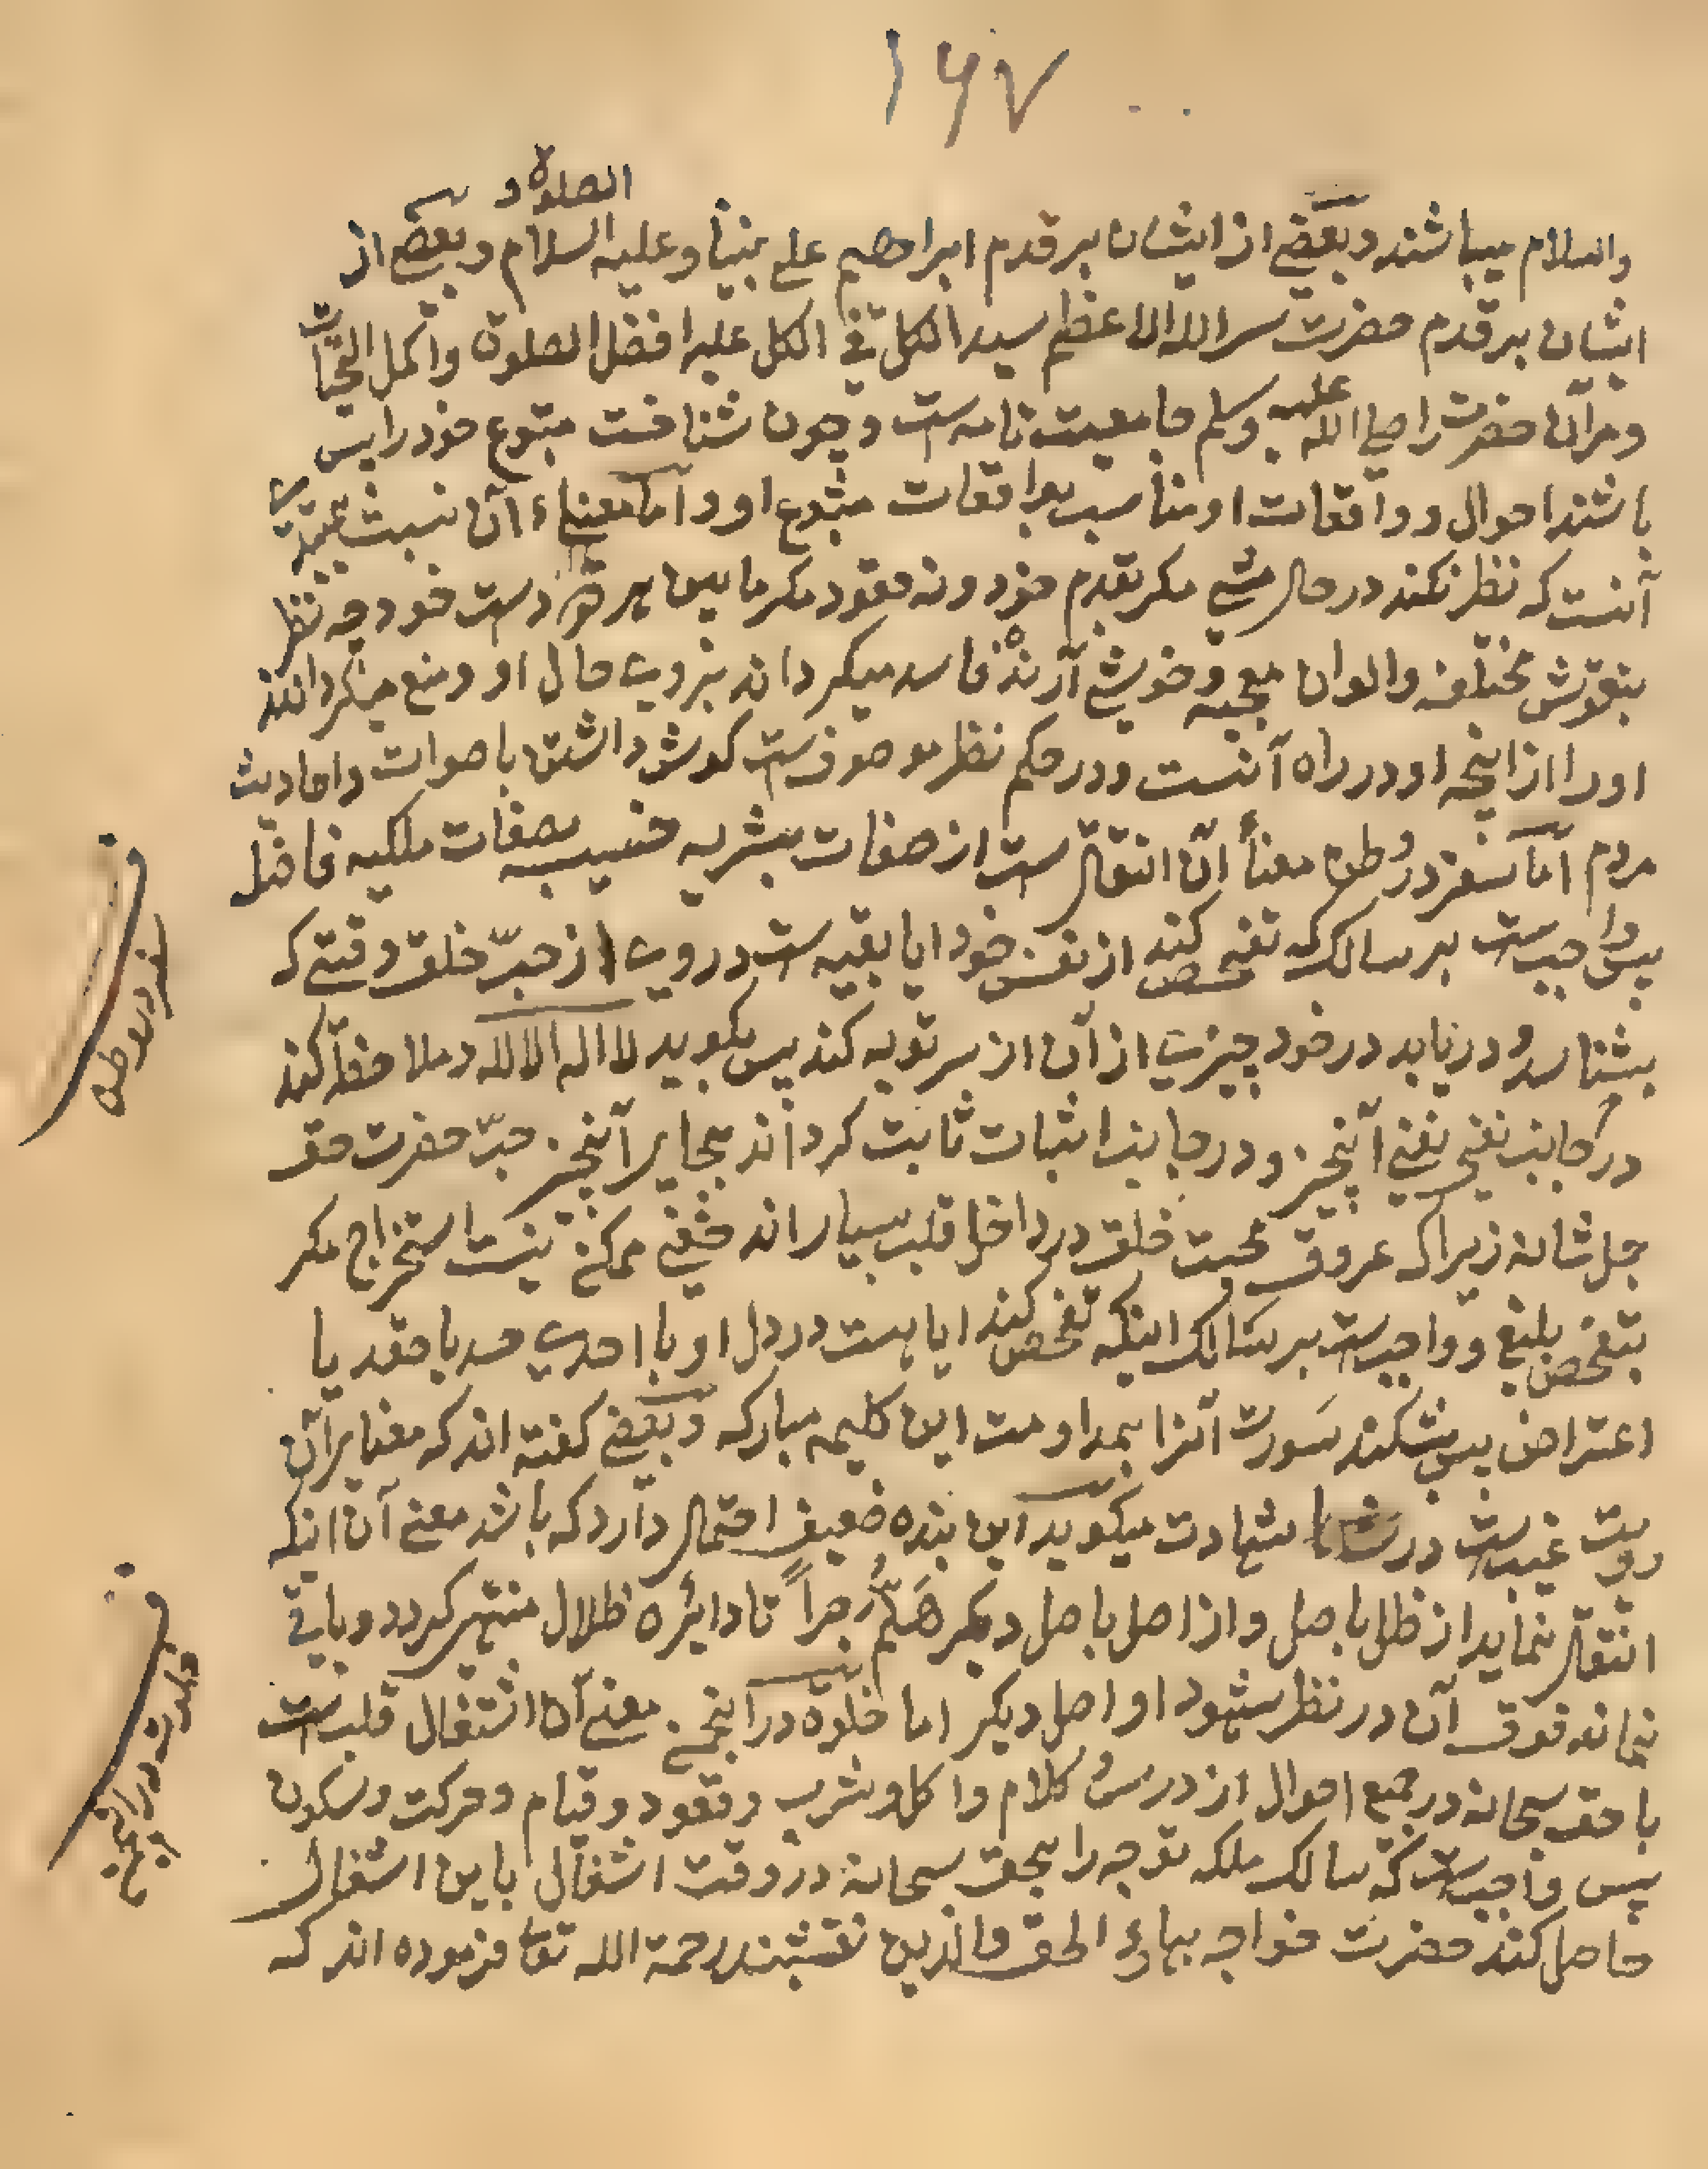 ۱۶۷
الصلوة و
والسلام میباشند و بعضے از ایشان بر قدم ابراهیم علی نبینا و علیه السلام و بعضے از
ایشان بر قدم حضرت سر الله الاعظم سید الکل فی الکل علیه افضل الصلوة و اکمل التحیات
و مر آن حضرت را صلی الله علیه وسلم جامعیت تامه ست و چون شناخت متبوع خود را پس
باشند احوال و واقعات او مناسب بواقعات متبوع او و اما معناء آن نسبت بمبتدی
آنست که نظر نکند در حال مشی مکر بقدم خود و نه قعود مکر مابین هر دو دست خود چه نظر
بنقوش مختلفه و الوان معجبه و خوشی آرنده فاسد میکرداند بروی حال او و منع میکردانند
اورا از اینچه او در راه آنست و در حکم نظر موصوف ست کوش داشتن باصوات و احادیث
مردم اما سفر در وطن معناً آن انتقال ست از صفات بشریه خسیسه بصفات ملکیه فاضله
پس واجب ست بر سالک که تفحص کند از نفس خود ایا بقیه ست در وی از حبّ خلق وقتی که
بشناسد و دریابد در خود چیزی از آن از سر توبه کند پس بکوید لا اله الا الله و ملاحظه کند
در جانب نفی نفی آنچیز و در جانب اثبات ثابت کرداند بجای آنچیز حبّ حضرت حق
جل شانه زیرا که عروق محبت خلق در داخل قلب بسیار اند خفی ممکن نیست استخراج مکر
بتفحص بلیغ و واجب ست بر سالک اینکه تفحص کند ایا هست در دل او با احدی حسد یا حقد یا
اعتراض پس بشکند سورت آنرا بمداومت این کلیمه مبارکه و بعضے کفته اند که معنایر آن
رویت غیب ست در شهادت میکوید این بنده ضعیف احتمال دارد که باشد معنی آن اینکه
انتقال نماید از ظل باصل و از اصل باصل دیکر هَلُمَّ جراً تا دائره ظلال منتهی کردد و باقی
نماند فوق آن در نظر شهود او اصل دیکر اما خلوة در انجمن معنی آن اشتغال قلب ست
با حق سبحانه در جمیع احوال از درس و کلام و اکل و شرب و قعود و قیام و حرکت و سکون
پس واجب ست که سالک ملکه توجه را بحق سبحانه در وقت اشتغال باین اشغال
حاصل کند حضرت خواجه بهاء الحق والدین نقشبند رحمة الله تعالی فرموده اند که
سفر در وطن
خلوت در انجمن